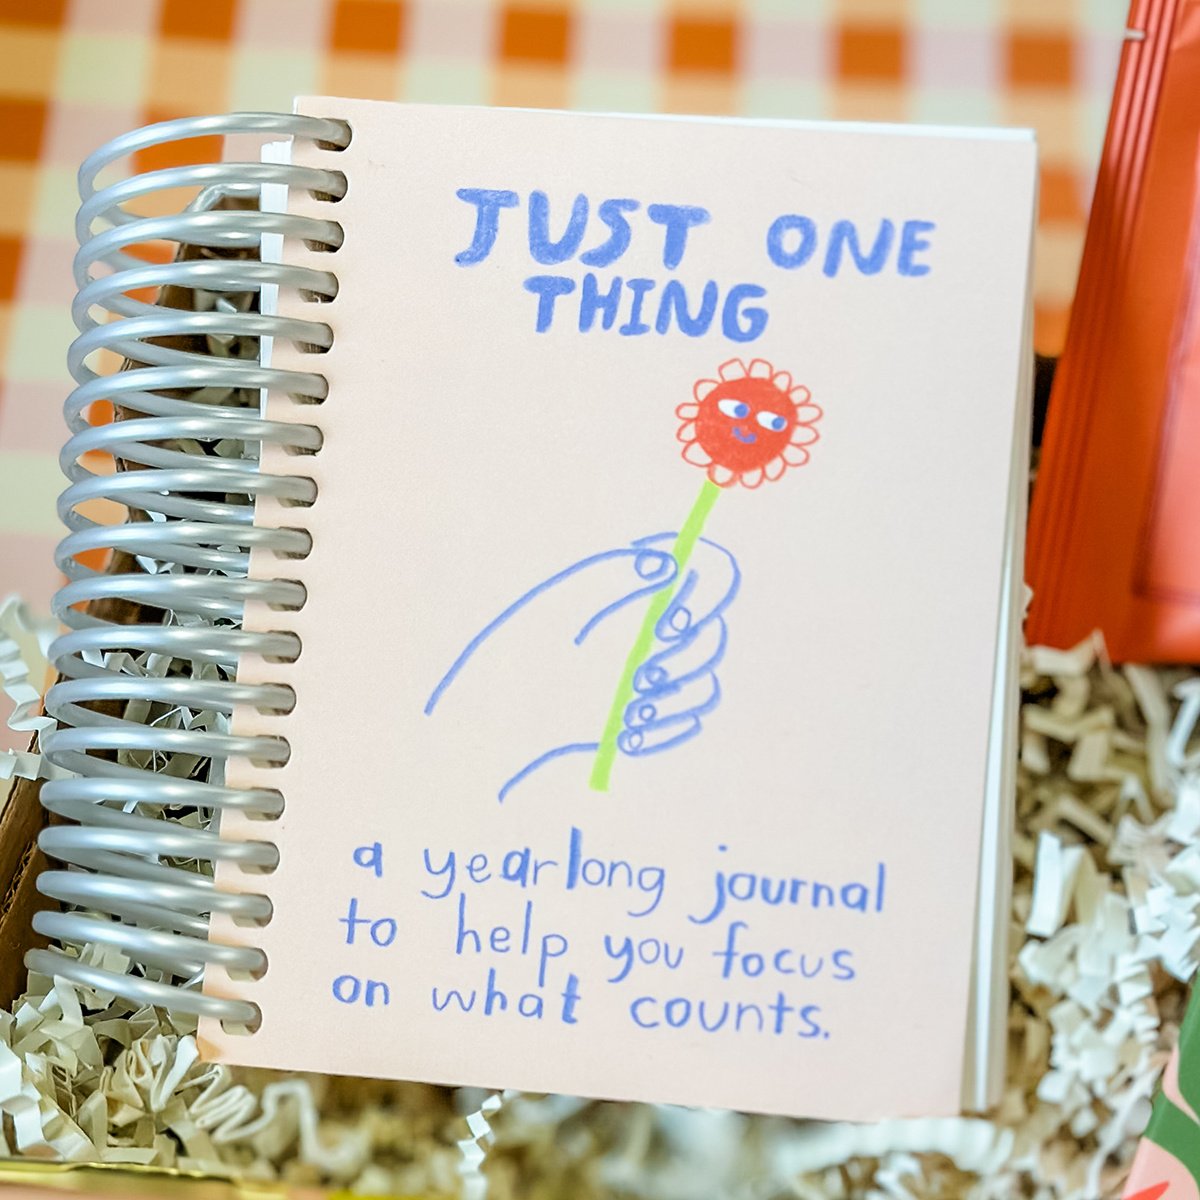 JUST ONE
THING
a yearlong journal
to help you focus
on what counts.